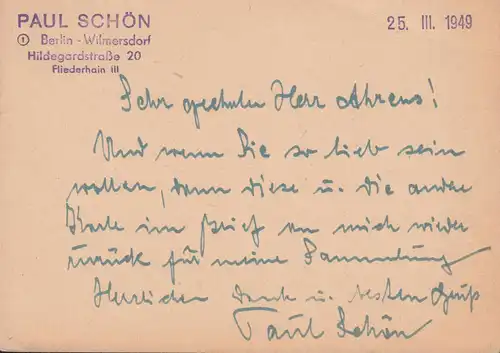 PAUL SCHÖN
① Berlin-Wilmersdorf
Hildegardstraße 20
Fliederhain III
25. III. 1949
Sehr geehrter Herr Ahrens!
Und wenn Sie so lieb sein
wollen, dann diese u. die andere
Karte im Brief an mich wieder
zurück für meine Sammlung
Herzlichen Dank u. besten Gruß
Paul Schön